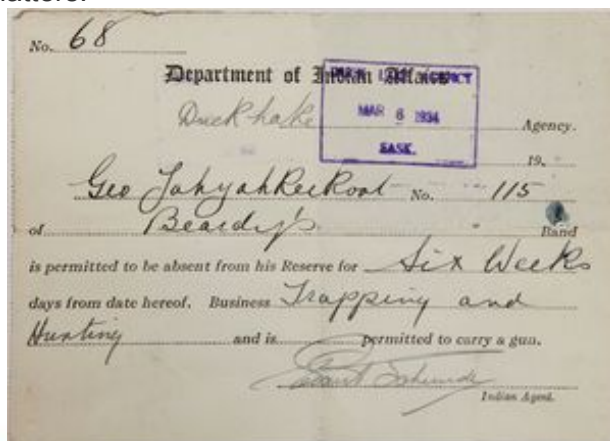 No. 68
Department of Indian Affairs
Duck Lake Agency.
DUCK LAKE AGENCY
MAR 6 1934
SASK.
19
Geo No. 115
of Beardy's Band
is permitted to be absent from his Reserve for Six Weeks
days from date hereof. Business Trapping and
Hunting and is permitted to carry a gun.
Indian Agent.